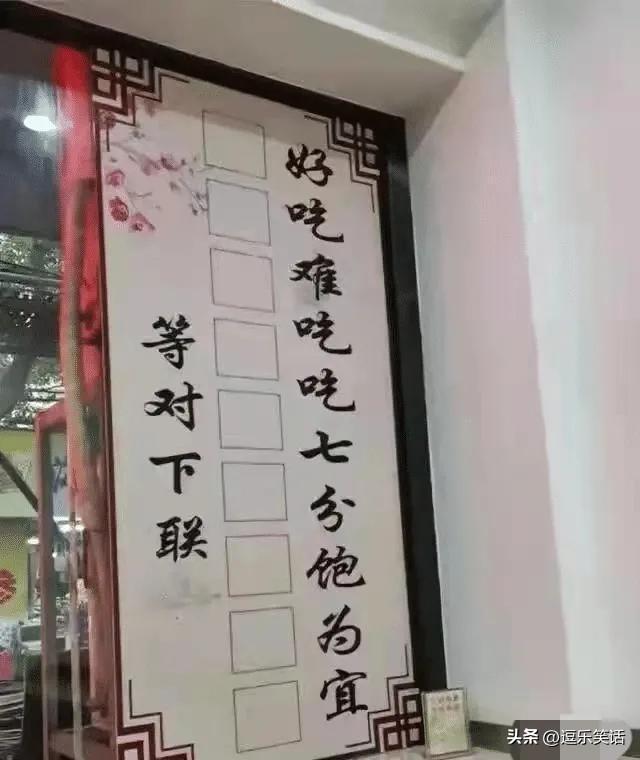 好吃难吃吃七分饱为宜
等对下联
头条 @逗乐笑话